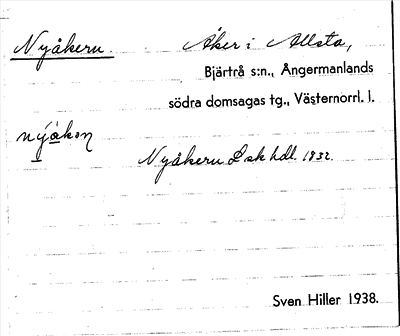 Nyåkern. Åker i Allsta,
Bjärtrå s:n., Ångermanlands
södra domsagas tg., Västernorrl. l.
nyåkεn
Nyåkern L sk hdl. 1832.
Sven Hiller 1938.